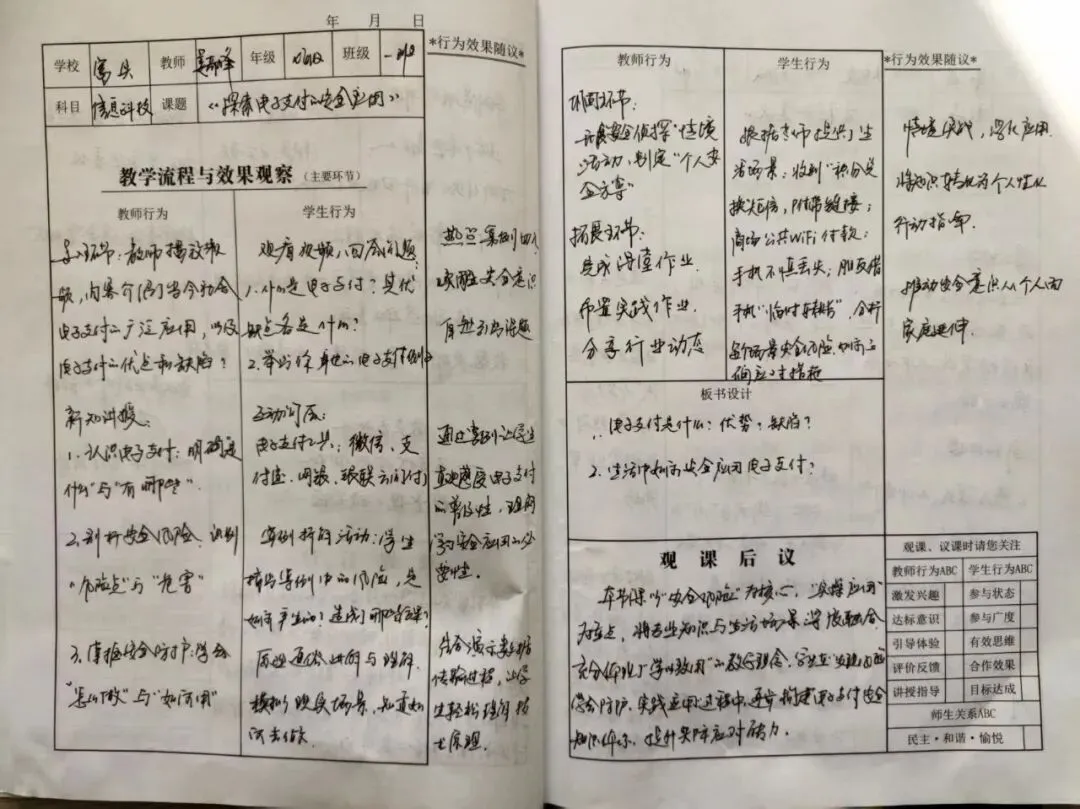 年 月 日
*行为效果随议*
学校 教师 年级 班级
科目 信息科技 课题 《探索电子支付的安全应用》
教学流程与效果观察(主要环节)
教师行为 学生行为
导入环节:教师播放视
频,内容介绍当今社会
电子支付的广泛应用,以及
电子支付的优点和缺陷?
新知讲授:
1.认识电子支付:明确是
什么"与"有哪些".
2.剖析安全风险,识别
"危险点"与"危害"
3.掌握安全防护:学会
"怎么做"与"如何用"
观看视频,回答问题:
1.什么是电子支付?其优
缺点各是什么?
2.举出你身边的电子支付例子
互动问答:
电子支付工具:微信、支
付宝、网银、银联云闪付
案例拆解活动:学生
找出案例中的风险,是
如何产生的?造成了哪些结果?
历通过讲解与理解
模拟场景,知道如
何去做.
唤醒安全意识
自然引出课题
通过案例让学生
直观感受电子支付
的普及性,理解
学习安全应用的必
要性.
结合演示类
传输过程,让学
生轻松理解技
术原理.
教师行为 学生行为 *行为效果随议*
巩固环节:
开展"安全侦探"情境
活动,制定"个人安
全方案"
拓展环节:
完成课堂作业.
布置实践作业.
分享行业动态
根据老师提供的生
活场景:收到"积分兑
换短信,附带链接;
商场公共WiFi付款;
手机不慎丢失;朋友借
手机"临时转账",分析
每个场景安全风险.如何正
确应对措施
情境实战,深化应用.
将知识转化为个人性化
行动指南.
推动安全意识从个人向
家庭延伸.
板书设计
1.电子支付是什么?优势?缺陷?
2.生活中如何安全应用电子支付?
观 课 后 议
本节课以"安全风险"为核心,"实操应用"
为重点,将专业知识与生活场景深度融合.
充分体现了"学以致用"的教学理念.学生在发现问题
学会防护,实践应用的过程中,逐步构建电子支付安全
知识体系,提升实际应对能力.
观课、议课时请您关注
教师行为ABC 学生行为ABC
激发兴趣 参与状态
达标意识 参与广度
引导体验 有效思维
评价反馈 合作效果
讲授指导 目标达成
师生关系ABC
民主·和谐·愉悦